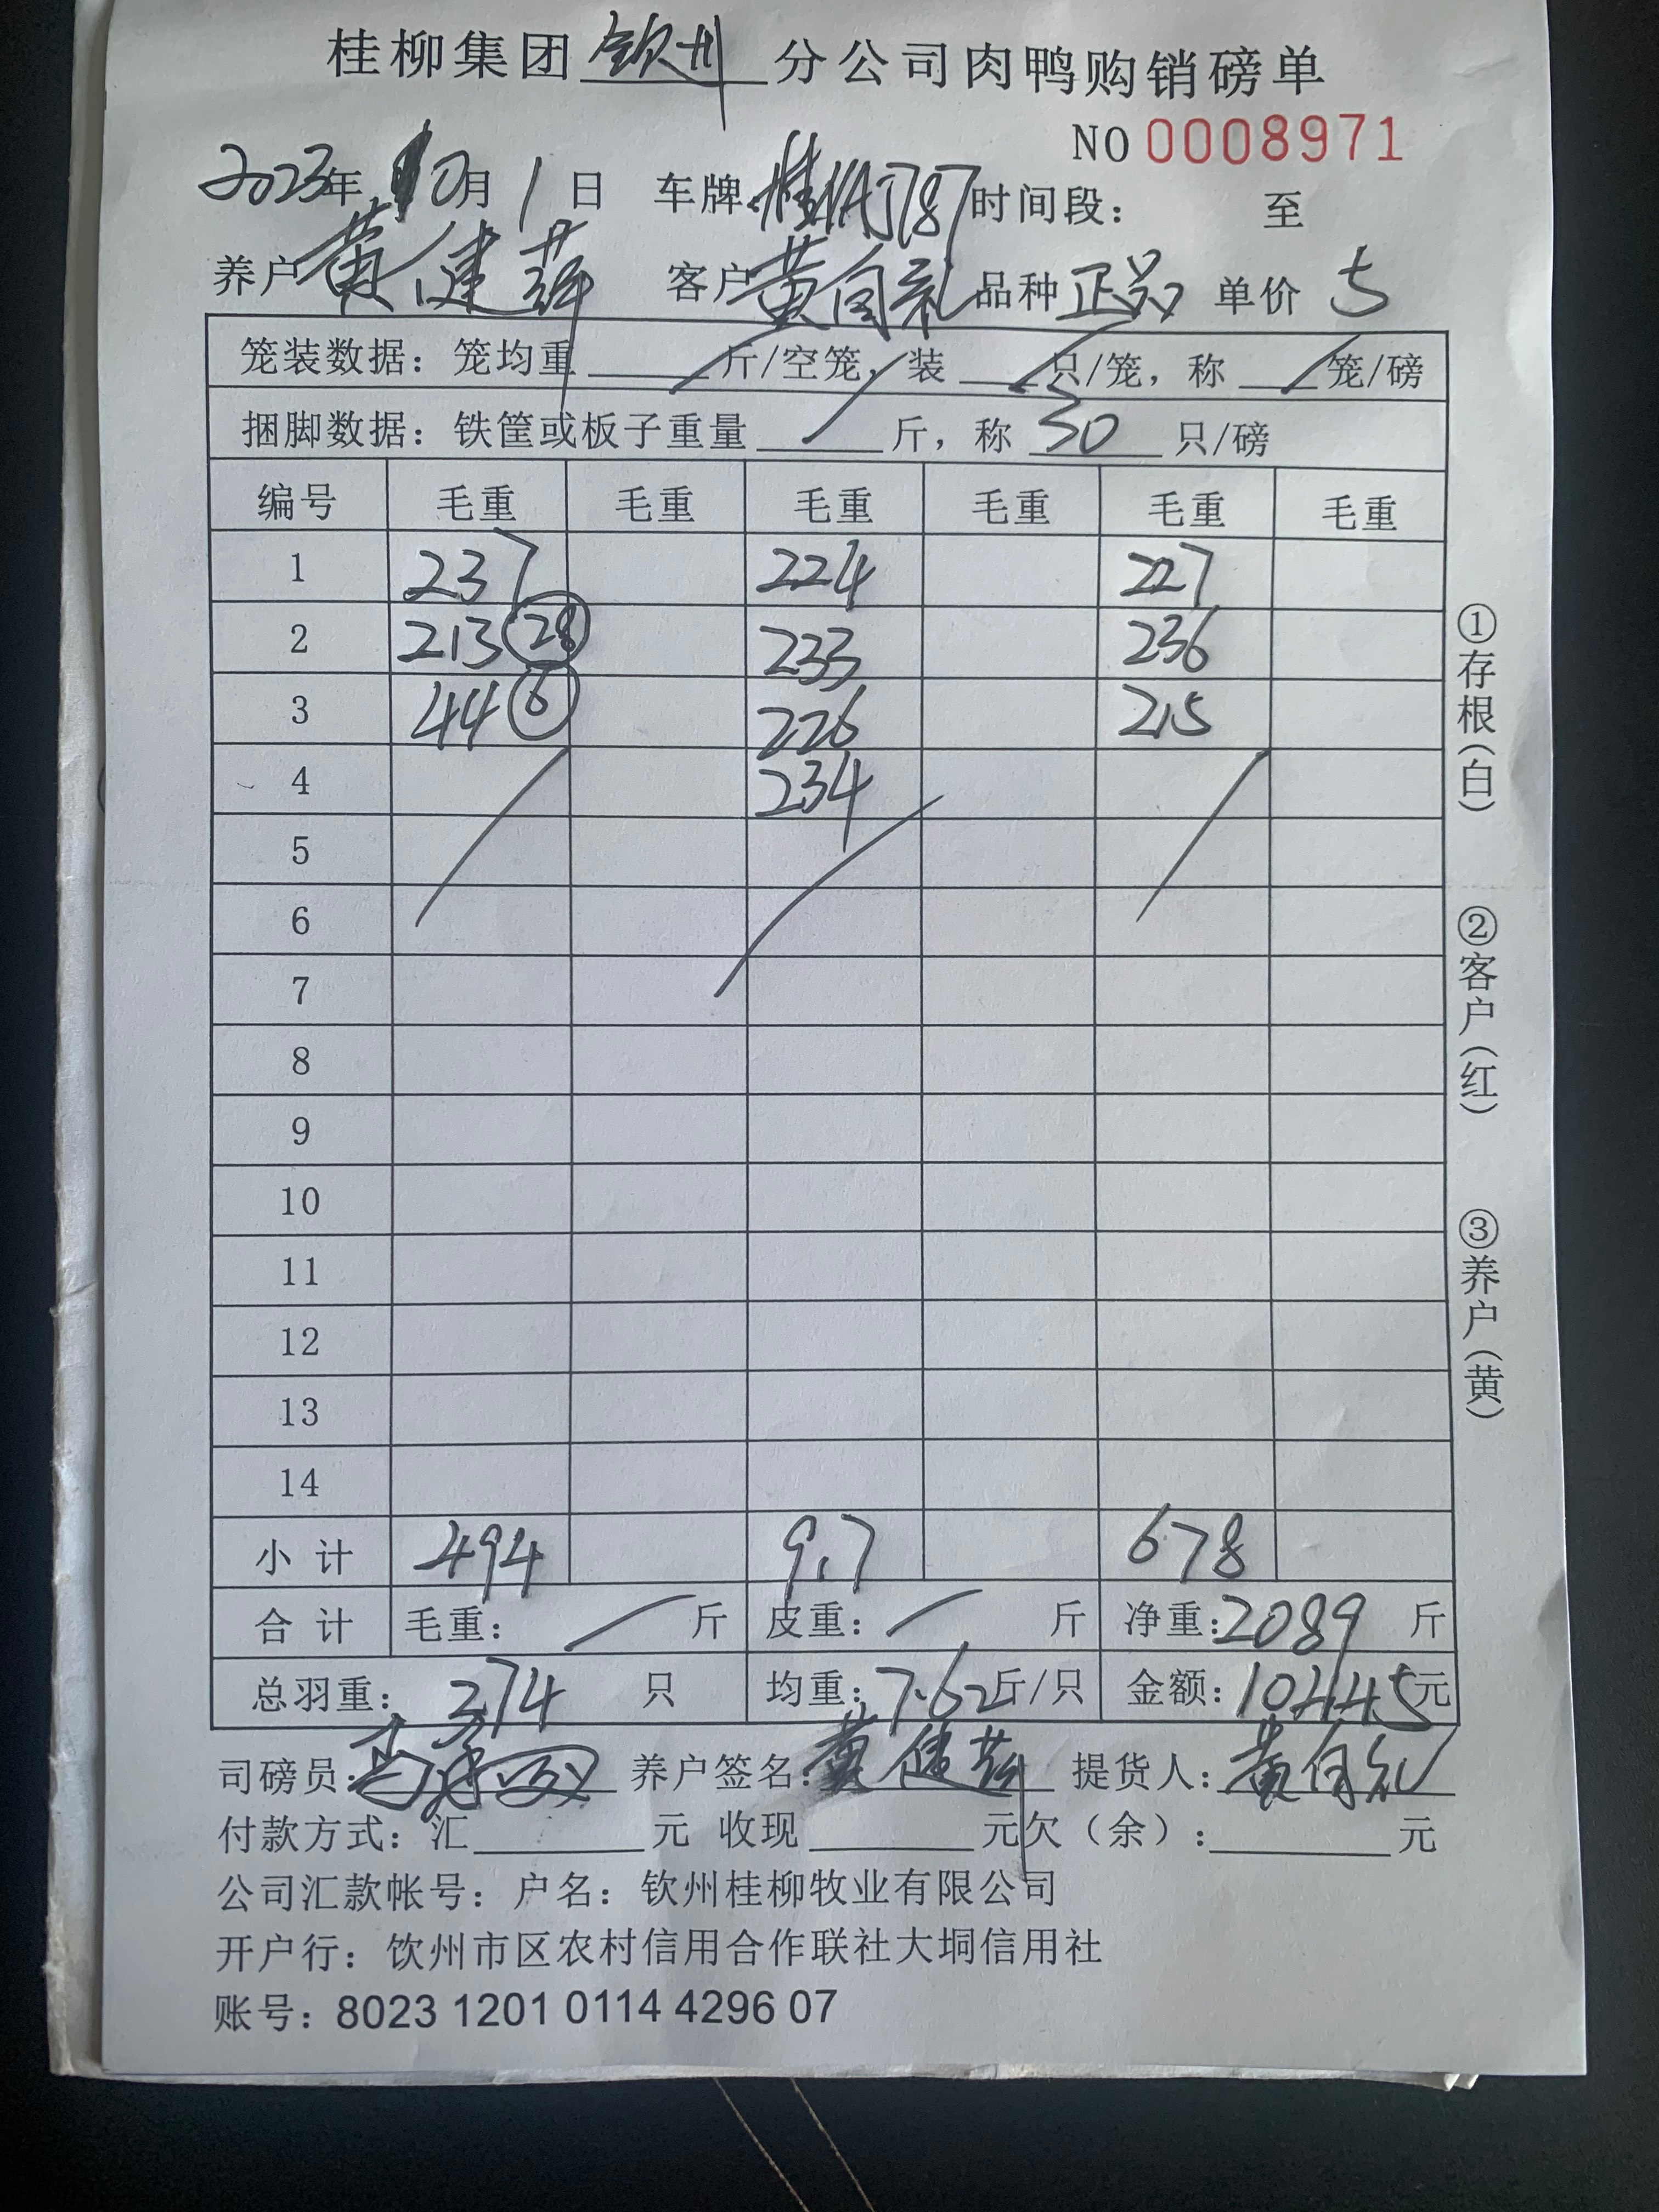 桂柳集团 钦州 分公司肉鸭购销磅单
NO 0008971
2023年 10月 1日 车牌: 时间段: 至
养户 黄健 客户 黄自礼 品种 正品 单价 5
笼装数据: 笼均重 / 斤/空笼, 装 / 只/笼, 称 / 笼/磅
捆脚数据: 铁筐或板子重量 / 斤, 称 30 只/磅
编号 毛重 毛重 毛重 毛重 毛重 毛重
1 237 224 227
2 213 28 233 236
3 44 6 226 215
4 234
5
6
7
8
9
10
11
12
13
14
小计 494 917 678
合计 毛重: / 斤 皮重: / 斤 净重: 2089 斤
总羽重: 274 只 均重: 7.62 斤/只 金额: 10445 元
司磅员: 养户签名: 黄健 提货人: 黄自礼
付款方式: 汇 元 收现 元欠(余): 元
公司汇款帐号: 户名: 钦州桂柳牧业有限公司
开户行: 饮州市区农村信用合作联社大垌信用社
账号: 8023 1201 0114 4296 07
①存根(白)
②客户(红)
③养户(黄)